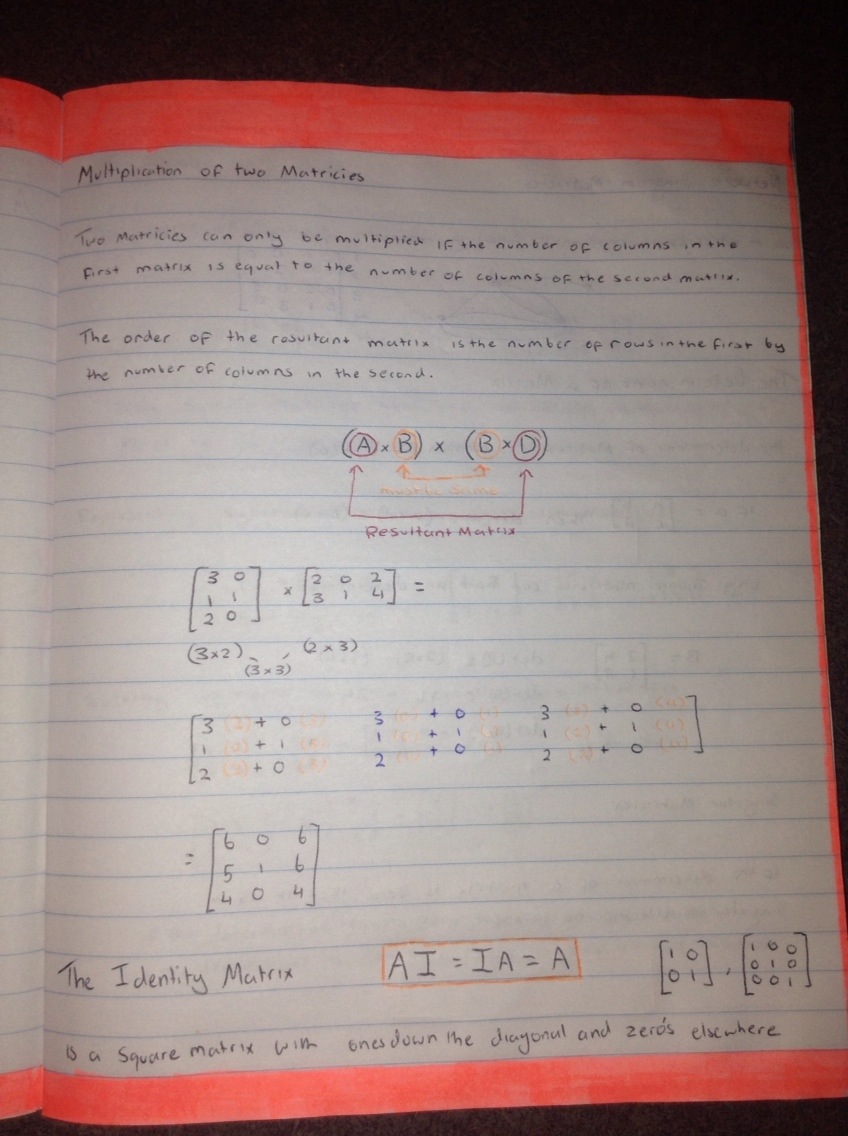 Multiplication of two Matricies
Two Matricies can only be multiplied if the number of columns in the
first matrix is equal to the number of columns of the second matrix.
The order of the resultant matrix is the number of rows in the first by
the number of columns in the second.
(A × B) × (B × D)
must be same
Resultant Matrix
[3 0] × [2 0 2] =
[1 1] [3 1 4]
[2 0]
(3×2) (2×3)
(3×3)
[3 (2) + 0 (3) 3 (0) + 0 (1) 3 (2) + 0 (4)]
1 (2) + 1 (3) 1 + 1 1 (2) + 1 (4)
2 + 0 (3) 2 + 0 (1) 2 (2) + 0 (4)
= [6 0 6]
[5 1 6]
[4 0 4]
The Identity Matrix AI = IA = A [1 0] , [1 0 0]
[0 1] [0 1 0]
[0 0 1]
is a square matrix with ones down the diagonal and zero's elsewhere